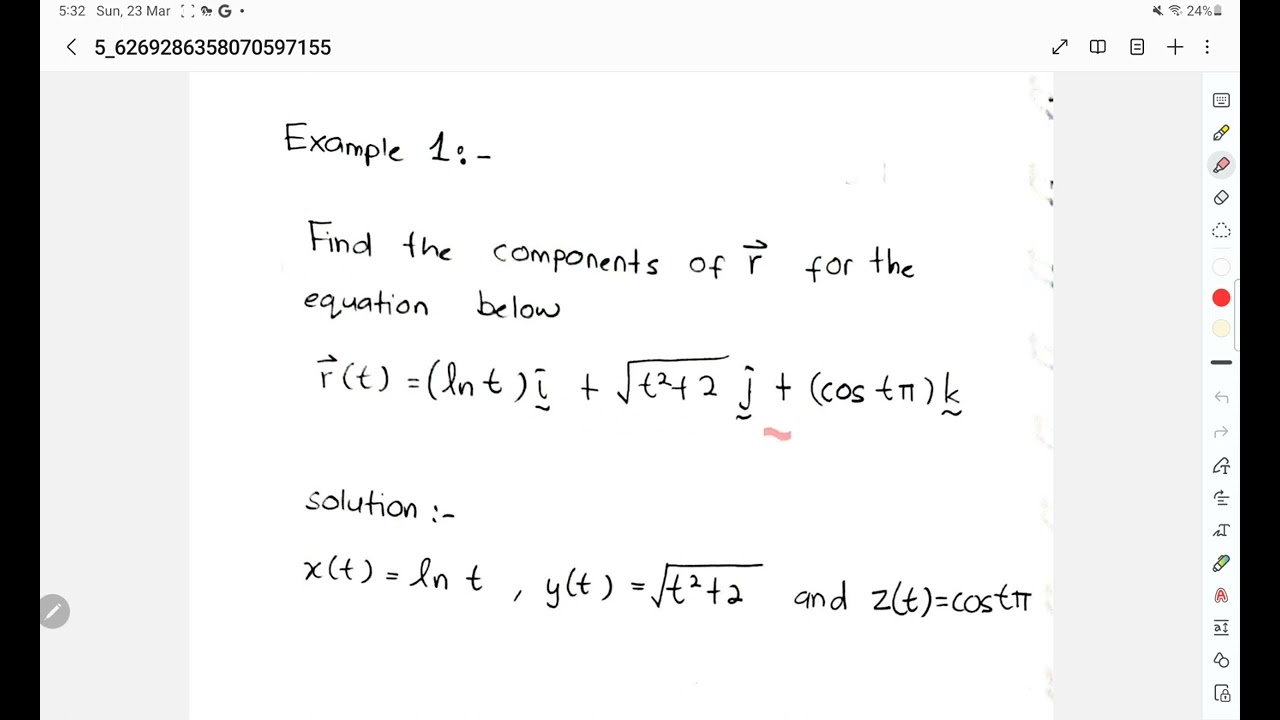 5:32 Sun, 23 Mar G • 24%
5_6269286358070597155
Example 1:-
Find the components of r⃗ for the
equation below
r⃗(t) = (ln t) i + √(t²+2) j + (cos tπ) k
solution :-
x(t) = ln t , y(t) = √(t²+2) and z(t)=cos tπ